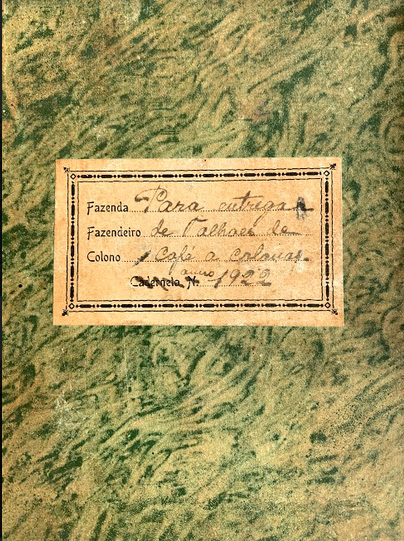 Fazenda Para entregar
Fazendeiro de Talhoes de
Colono Café a colonos
anno
Caderneta N. 1922